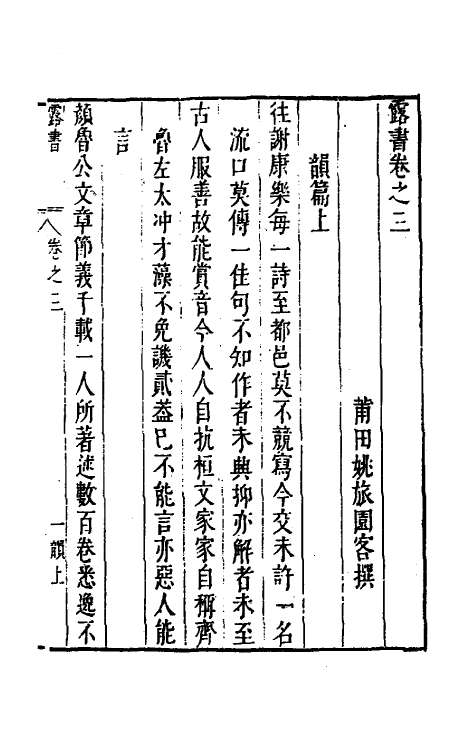 露書卷之三
莆田姚旅園客撰
韻篇上
往謝康樂每一詩至都邑莫不競寫今交未許一名
流口莫傳一佳句不知作者未與抑亦解者未至
古人服善故能賞音今人人自抗桓文家家自稱齊
魯左太冲才藻不免譏貳葢巳不能言亦惡人能
言
顏魯公文章節義千載一人所著述數百卷悉逸不
露書 卷之三 一韻上